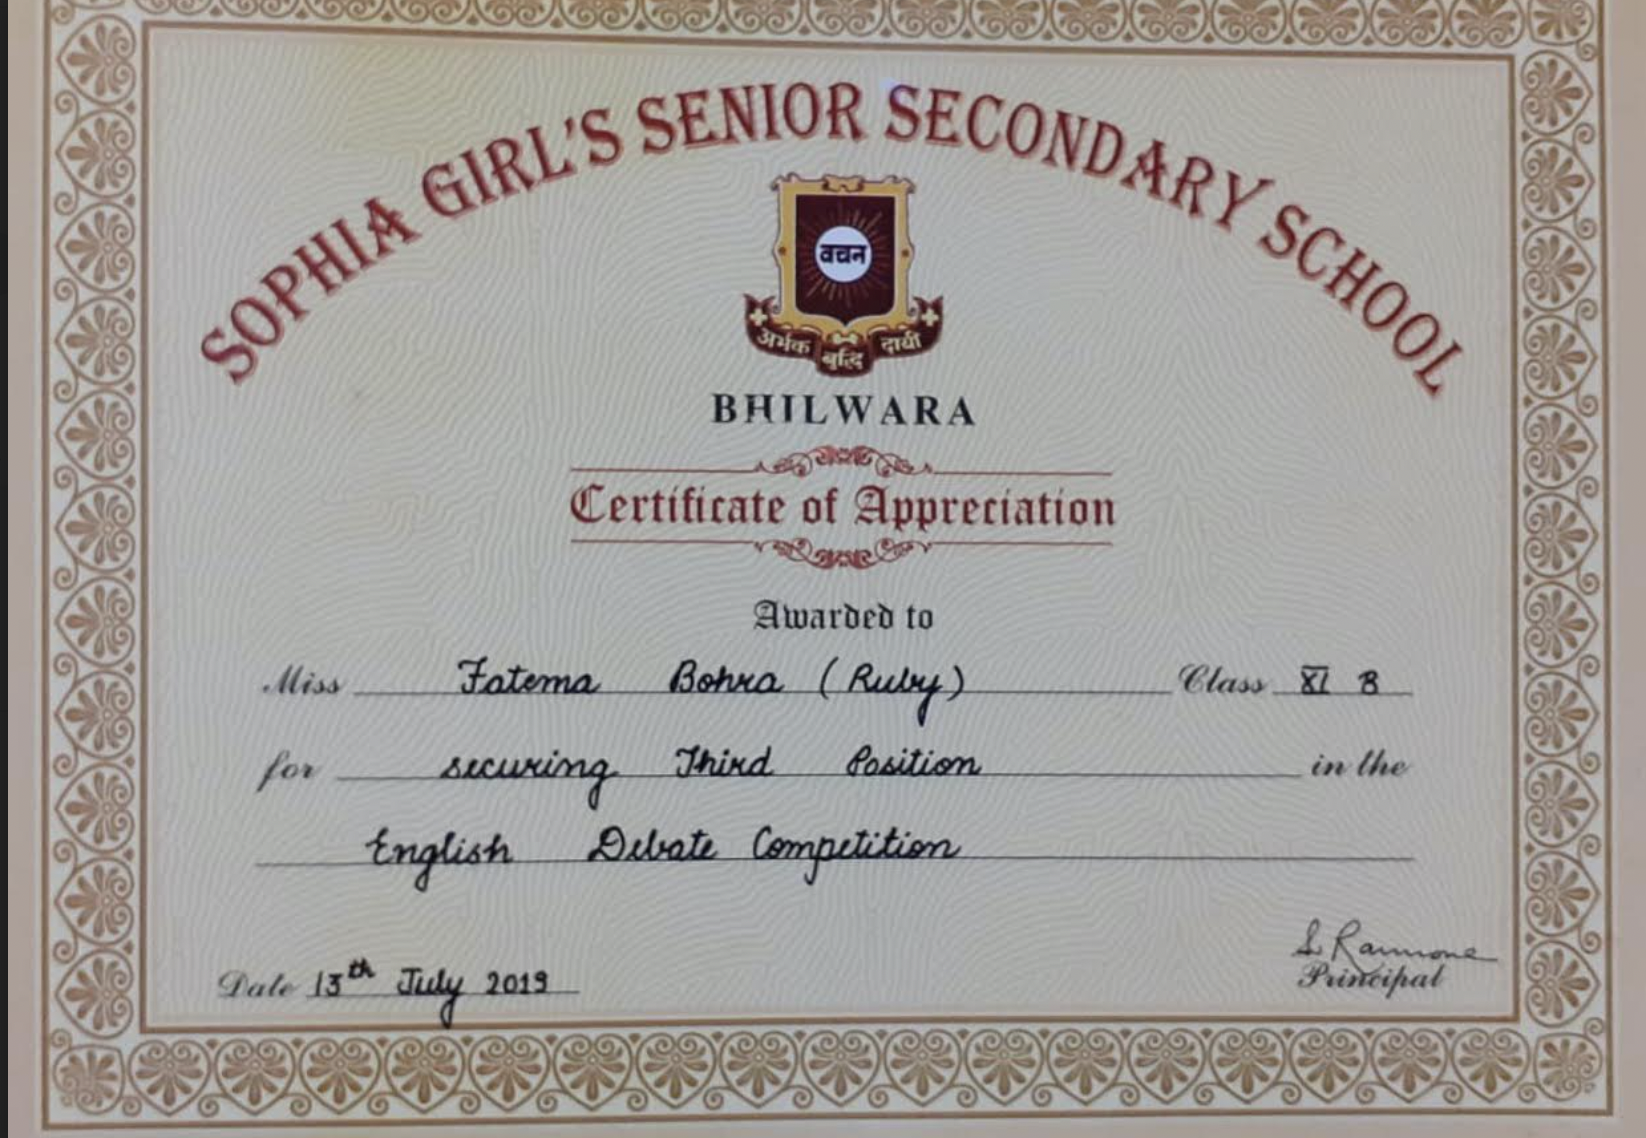 SOPHIA GIRL'S SENIOR SECONDARY SCHOOL
वचन
अर्भक बुद्धि दायी
BHILWARA
Certificate of Appreciation
Awarded to
Miss Fatema Bohra (Ruby) Class XI B
for securing Third Position in the
English Debate Competition
S. Rammone
Date 13th July 2019 Principal